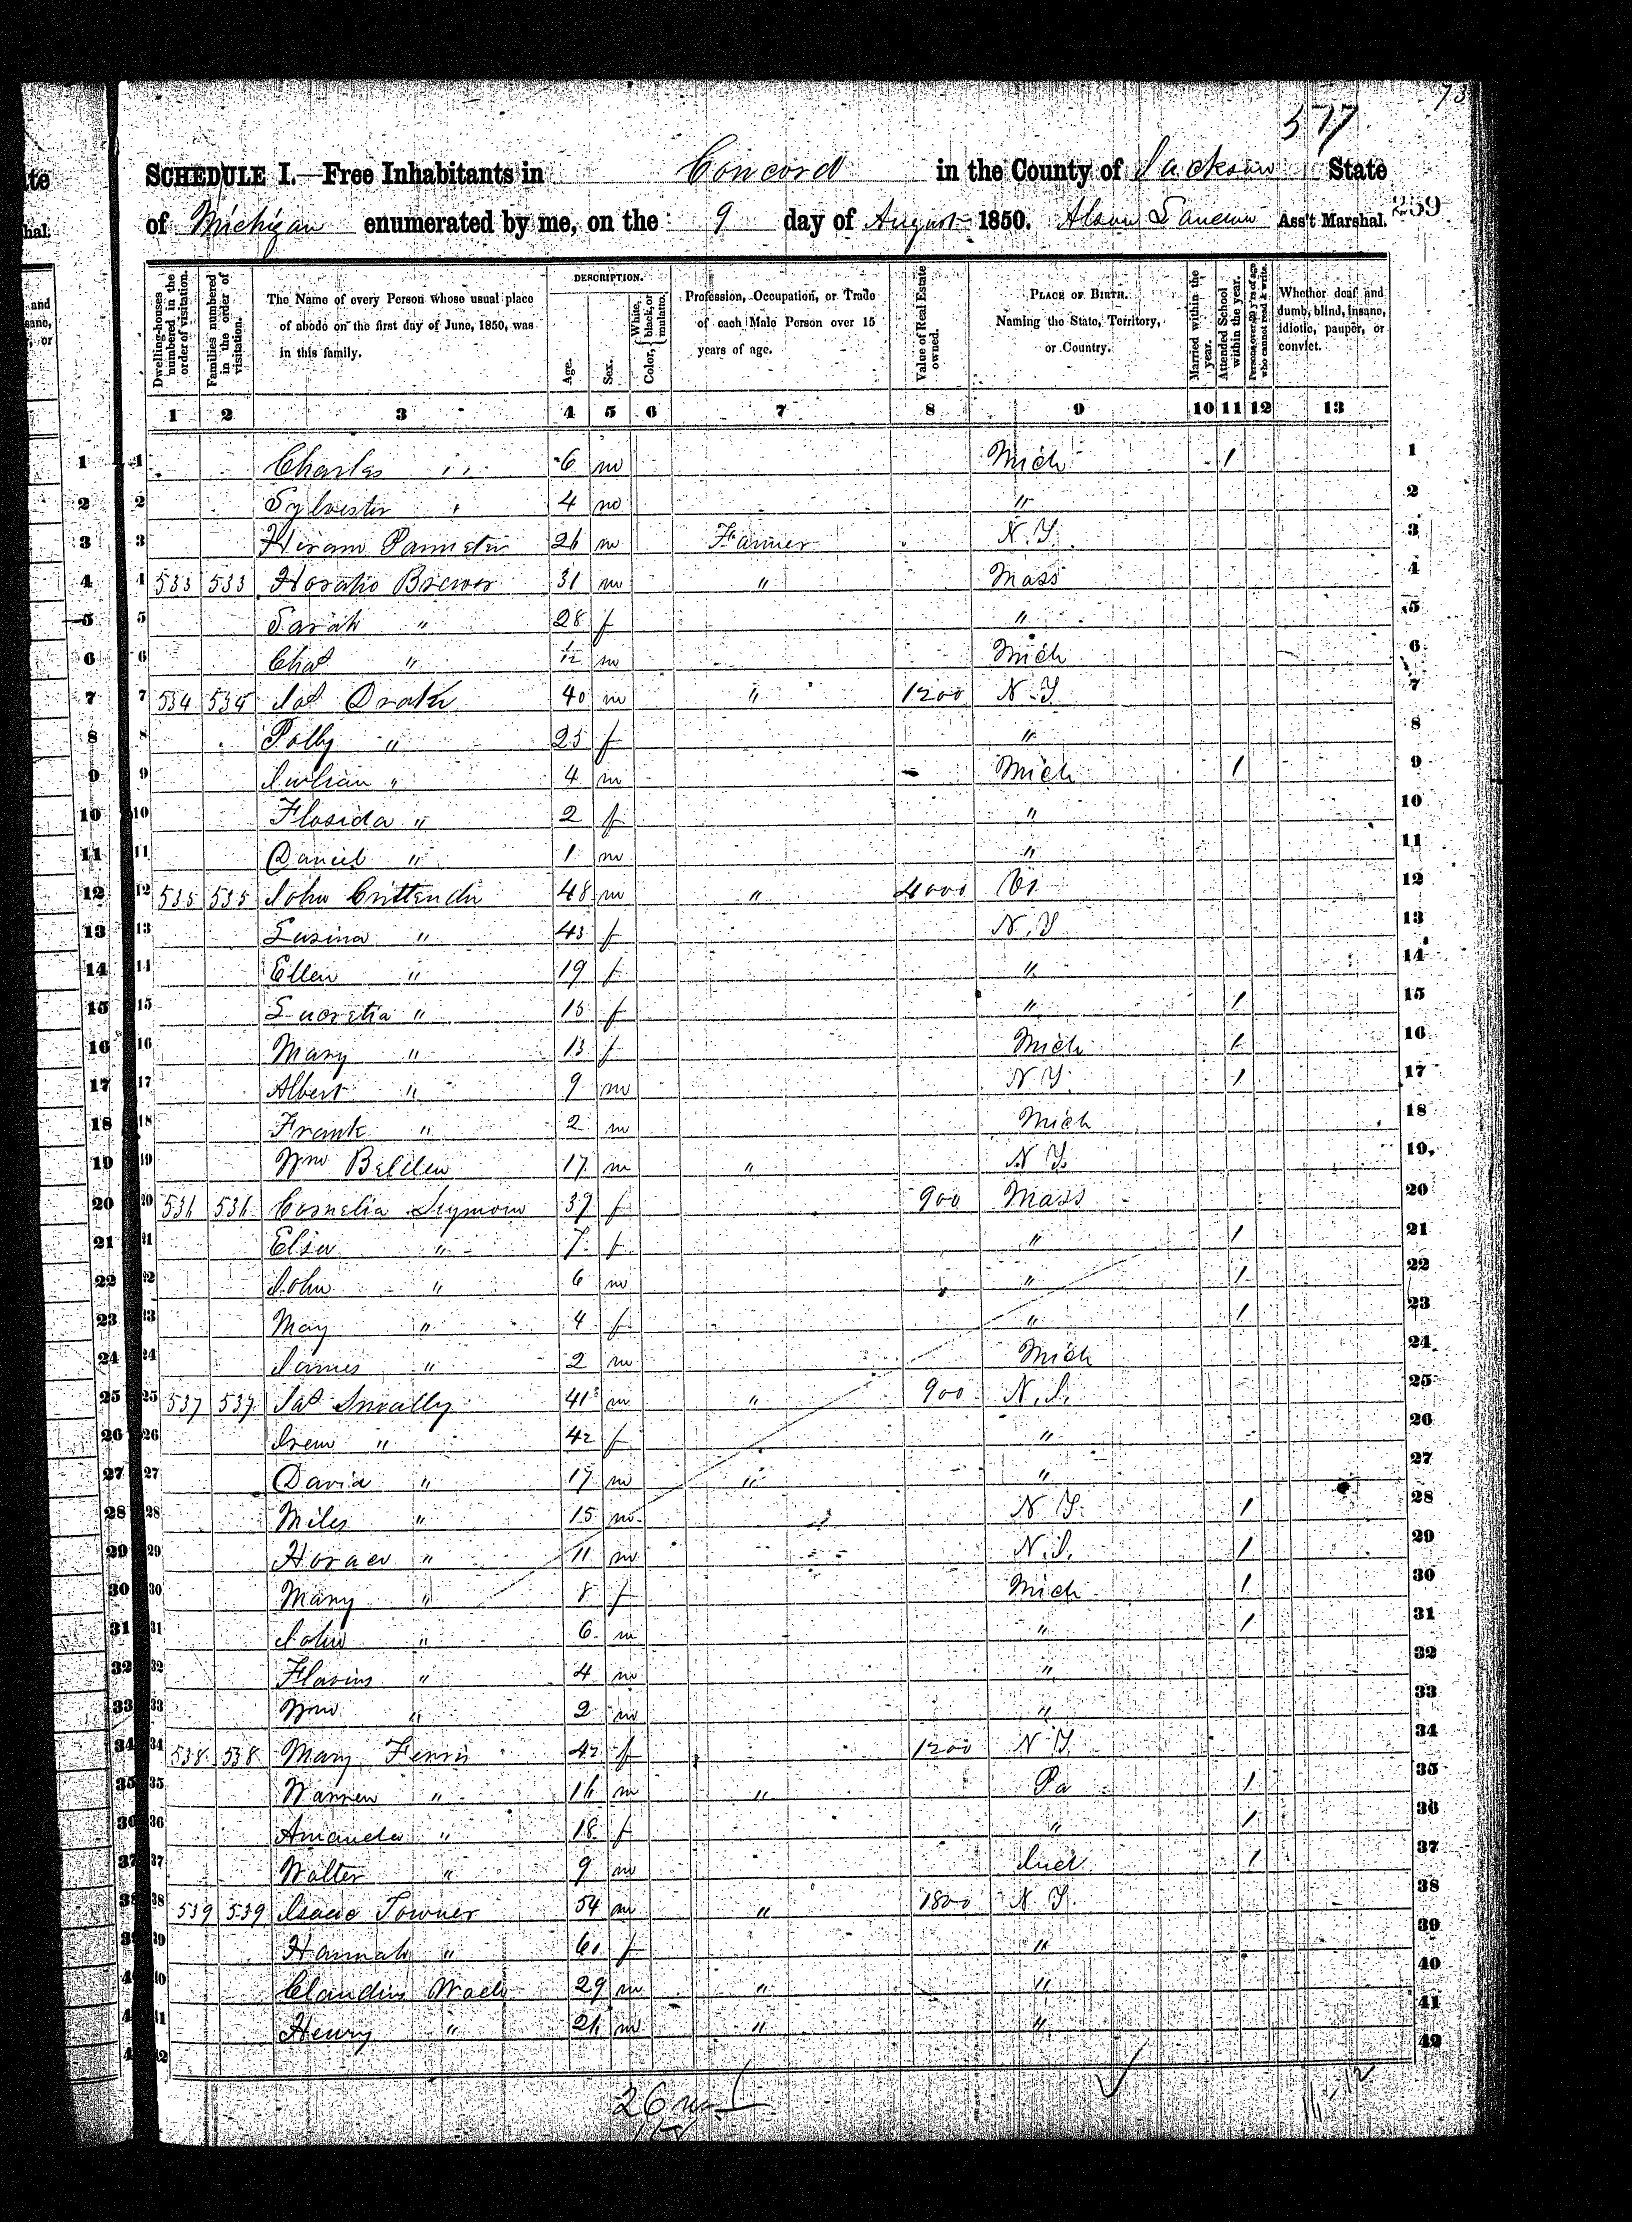 577
SCHEDULE I.—Free Inhabitants in Concord in the County of Jackson State
of Michigan enumerated by me, on the 9 day of August 1850. Ass't Marshal. 259
Dwelling-houses numbered in the order of visitation.
Families numbered in the order of visitation.
The Name of every Person whose usual place of abode on the first day of June, 1850, was in this family.
DESCRIPTION.
Age.
Sex.
Color, White, black, or mulatto.
Profession, Occupation, or Trade of each Male Person over 15 years of age.
Value of Real Estate owned.
PLACE OF BIRTH. Naming the State, Territory, or Country.
Married within the year.
Attended School within the year.
Persons over 20 y'rs of age who cannot read & write.
Whether deaf and dumb, blind, insane, idiotic, pauper, or convict.
1 2 3 4 5 6 7 8 9 10 11 12 13
1 Charles " 6 m Mich 1 1
2 Sylvester " 4 m " 2
3 Hiram 26 m Farmer N.Y. 3
4 533 533 Horatio Brewer 31 m " Mass 4
5 Sarah " 28 f " 5
6 Chas " 1/12 m Mich 6
7 534 534 Jas Drake 40 m " 1200 N.Y. 7
8 Polly " 25 f " 8
9 Julian " 4 m Mich 1 9
10 Florida " 2 f " 10
11 Daniel " 1 m " 11
12 535 535 John Crittenden 48 m " 4000 Vt 12
13 Lusina " 43 f N.Y 13
14 Ellen " 19 f " 14
15 Lucretia " 15 f " 1 15
16 Mary " 13 f Mich 1 16
17 Albert " 9 m N Y. 1 17
18 Frank " 2 m Mich 18
19 Wm Belden 17 m " N.Y. 19
20 536 536 Cornelia Seymour 37 f 900 Mass 20
21 Eliza " 7 f " 1 21
22 John " 6 m " 1 22
23 May " 4 f " 1 23
24 James " 2 m Mich 24
25 537 537 Jas Smally 41 m " 900 N.J. 25
26 Irena " 42 f " 26
27 David " 17 m " " 27
28 Miles " 15 m N Y. 1 28
29 Horace " 11 m N.J. 1 29
30 Mary " 8 f Mich 1 30
31 John " 6 m " 1 31
32 Flavius " 4 m " 32
33 Wm " 2 m " 33
34 538 538 Mary Ferris 42 f 1200 N Y 34
35 Warren " 16 m " Pa 1 35
36 Amanda " 18 f " 1 36
37 Walter " 9 m Ind 1 37
38 539 539 Isaac Towner 54 m " 1800 N Y. 38
39 Hannah " 60 f " 39
40 Claudius Wade 29 m " " 40
41 Henry " 26 m " " 41
42 42
26 m